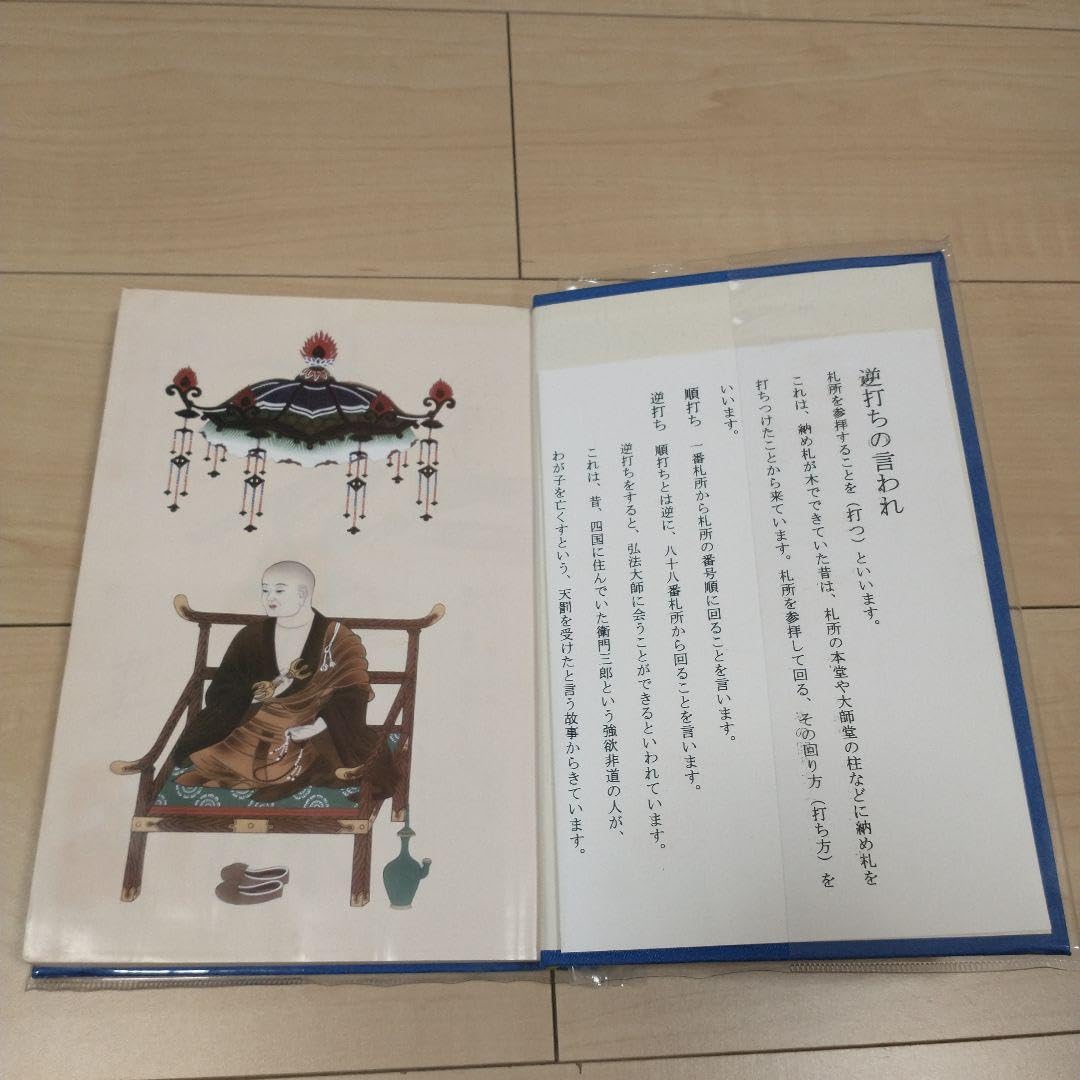 逆打ちの言われ
札所を参拝することを（打つ）といいます。
これは、納め札が木でできていた昔は、札所の本堂や大師堂の柱などに納め札を
打ちつけたことから来ています。札所を参拝して回る、その回り方（打ち方）を
いいます。
順打ち　一番札所から札所の番号順に回ることを言います。
逆打ち　順打ちとは逆に、八十八番札所から回ることを言います。
逆打ちをすると、弘法大師に会うことができるといわれています。
これは、昔、四国に住んでいた衛門三郎という強欲非道の人が、
わが子を亡くすという、天罰を受けたと言う故事からきています。